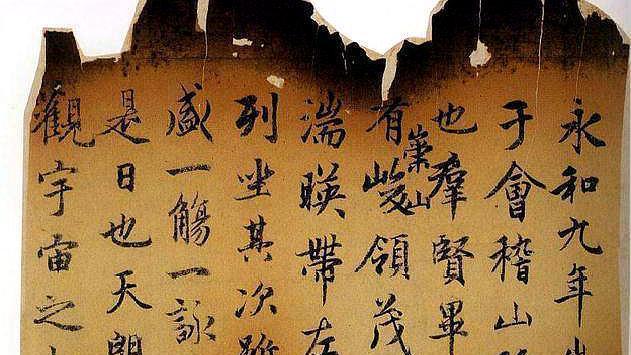 永和九年
于會稽山
也羣賢畢
有崇山峻領茂
湍暎帶左
列坐其次雖
盛一觴一詠
是日也天朗
觀宇宙之